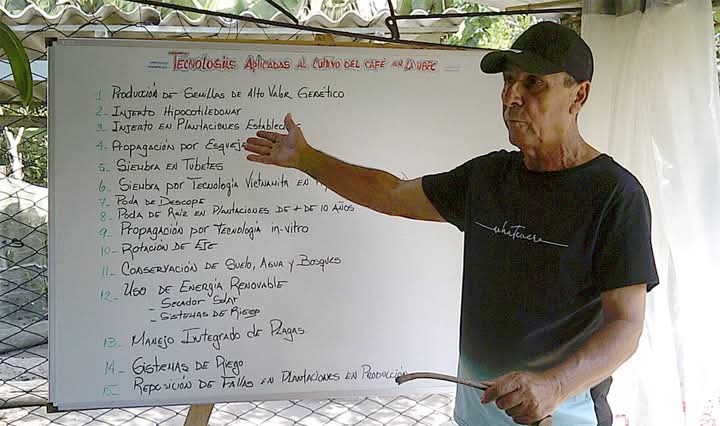 Tecnologías Aplicadas al Cultivo del Café en la UBPC
1- Producción de Semillas de Alto Valor Genético
2- Injerto Hipocotiledonar
3- Injerto en Plantaciones
4- Propagación por
5- Siembra en Tubetes
6- Siembra por Tecnología Vietnamita en
7- Poda de Descope
8- Poda de Raíz en Plantaciones de + de 10 años
9- Propagación por Tecnología in-vitro
10- Rotación de EJE
11- Conservación de Suelo, Agua y Bosques
12- Uso de Energía Renovable
- Secador Solar
- Sistemas de Riego
13- Manejo Integrado de Plagas
14- Sistemas de Riego
15- Reposición de Fallas en Plantaciones en Producción
whatever